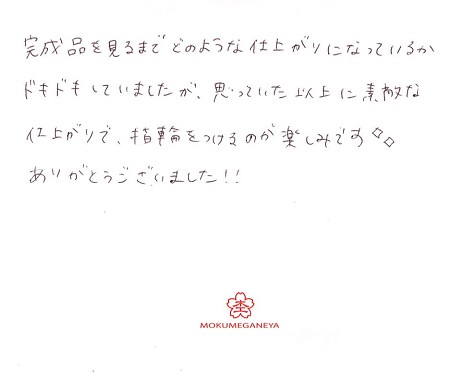 完成品を見るまでどのような仕上がりになっているか
ドキドキしていましたが、思っていた以上に素敵な
仕上がりで、指輪をつけるのが楽しみです◇◇
ありがとうございました!!
MOKUMEGANEYA